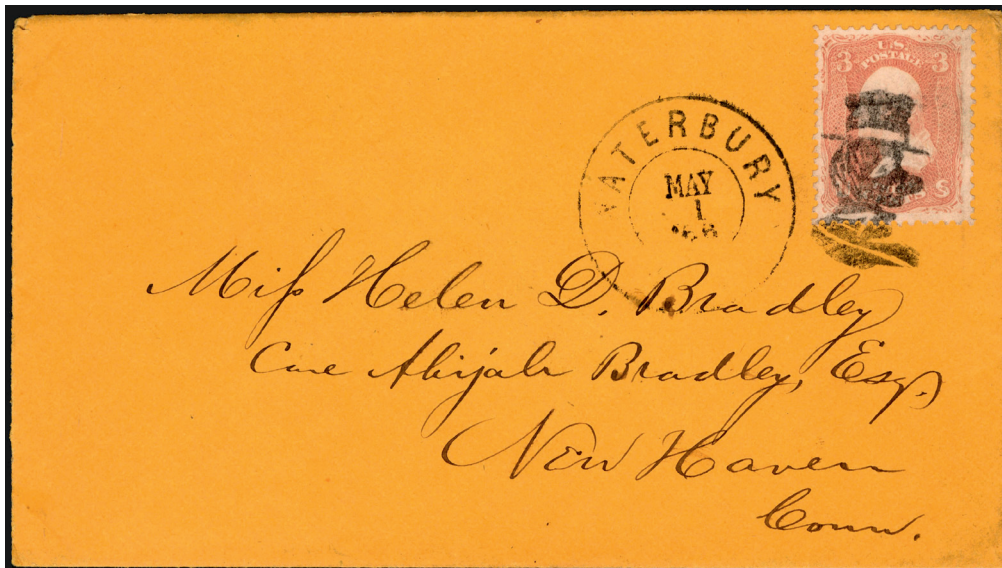 U.S.
POSTAGE
3 3
WATERBURY
MAY
1
Miss Helen D. Bradley
Care Abijah Bradley, Esq.
New Haven
Conn.